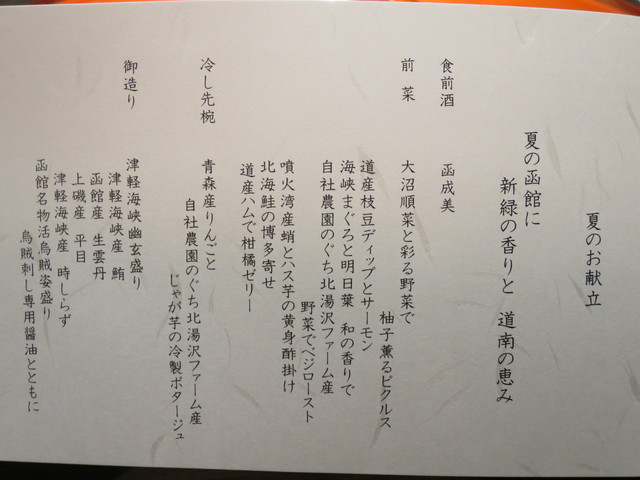 夏のお献立
夏の函館に
新緑の香りと 道南の恵み
食前酒 函成美
前菜 大沼順菜と彩る野菜で
柚子薫るピクルス
道産枝豆ディップとサーモン
海峡まぐろと明日葉 和の香りで
自社農園のぐち北湯沢ファーム産
野菜でベジロースト
噴火湾産蛸とハス芋の黄身酢掛け
北海鮭の博多寄せ
道産ハムで柑橘ゼリー
冷し先椀 青森産りんごと
自社農園のぐち北湯沢ファーム産
じゃが芋の冷製ポタージュ
御造り 津軽海峡幽玄盛り
津軽海峡産 鮪
函館産 生雲丹
上磯産 平目
津軽海峡産 時しらず
函館名物活烏賊姿盛り
烏賊刺し専用醤油とともに